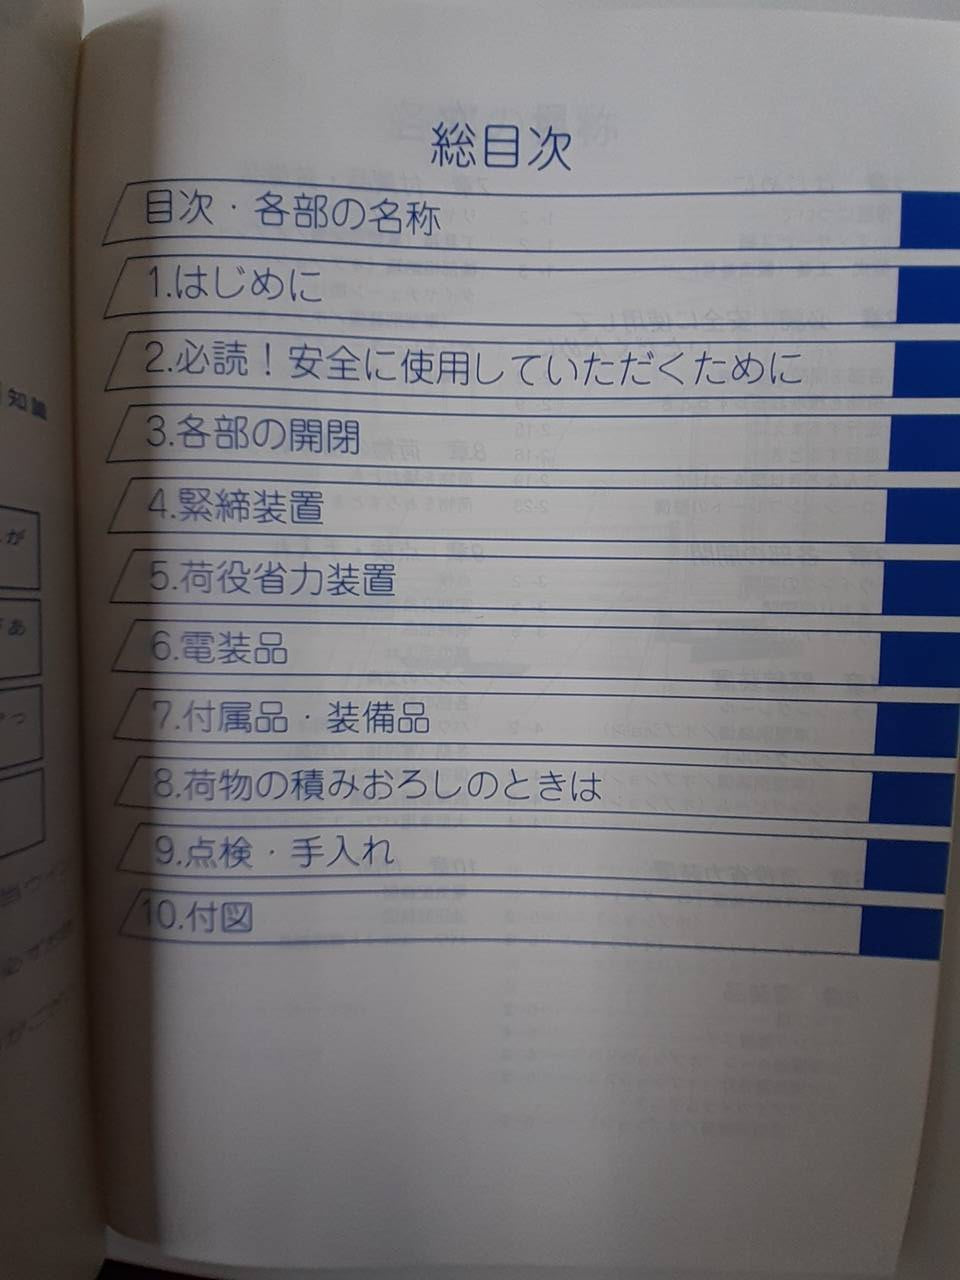 総目次
目次・各部の名称
1.はじめに
2.必読！安全に使用していただくために
3.各部の開閉
4.緊締装置
5.荷役省力装置
6.電装品
7.付属品・装備品
8.荷物の積みおろしのときは
9.点検・手入れ
10.付図
知識
が
あ
っ